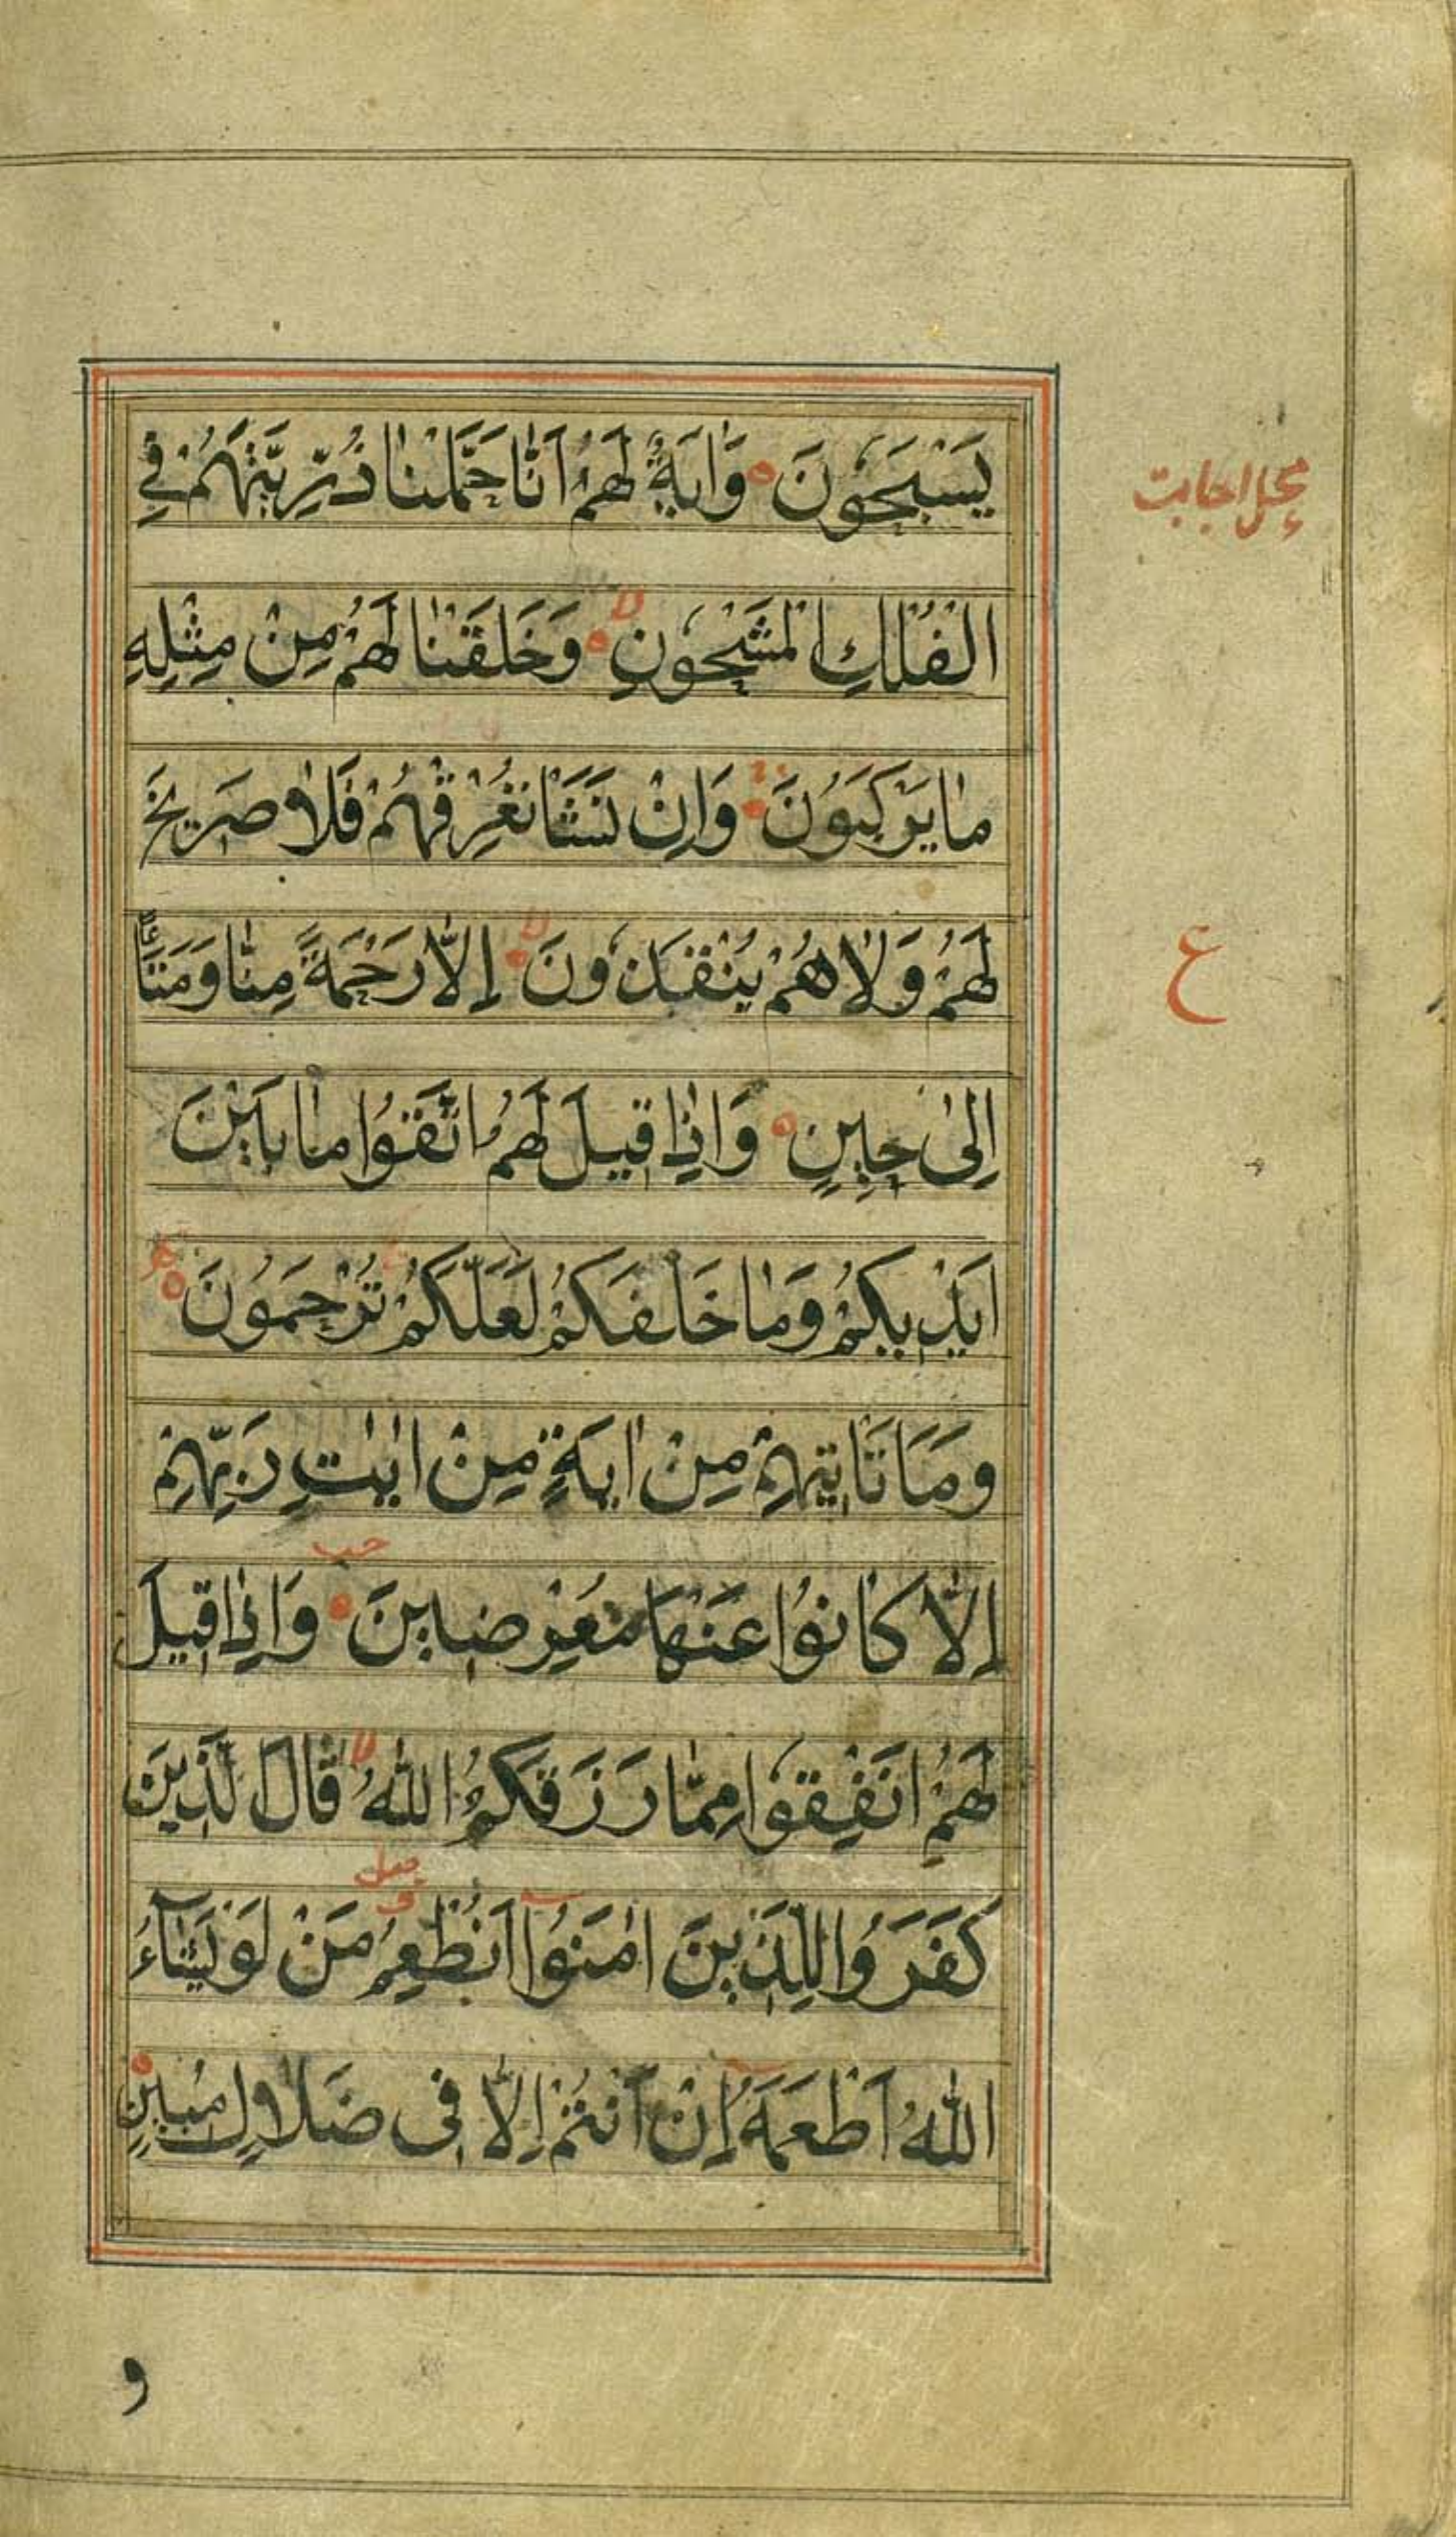 يَسْبَحُونَ وَاٰيَةٌ لَهُمْ اَنّٰا حَمَلْنٰا ذُرِّيَّتَهُمْ فِي
الْفُلْكِ الْمَشْحُونِ لا وَخَلَقْنٰا لَهُمْ مِنْ مِثْلِهِ
مٰا يَرْكَبُونَ وَاِنْ نَشَأْ نُغْرِقْهُمْ فَلٰا صَرِيخَ
لَهُمْ وَلٰا هُمْ يُنْقَذُونَ لا اِلّٰا رَحْمَةً مِنّٰا وَمَتَاعًا
اِلىٰ حِينٍ وَاِذٰا قِيلَ لَهُمُ اتَّقُوا مٰا بَيْنَ
اَيْدِيكُمْ وَمٰا خَلْفَكُمْ لَعَلَّكُمْ تُرْحَمُونَ
وَمَا تَأْتِيهِمْ مِنْ اٰيَةٍ مِنْ اٰيٰتِ رَبِّهِمْ
اِلّٰا كٰانُوا عَنْهَا مُعْرِضِينَ وَاِذٰا قِيلَ
لَهُمْ اَنْفِقُوا مِمّٰا رَزَقَكُمُ اللّٰهُ لا قَالَ الَّذِينَ
كَفَرُوا لِلَّذِينَ اٰمَنُوا اَنُطْعِمُ مَنْ لَوْ يَشَآءُ
اللّٰهُ اَطْعَمَهُ اِنْ اَنْتُمْ اِلّٰا فِي ضَلٰالٍ مُبِينٍ
محل اجابت
ع
و